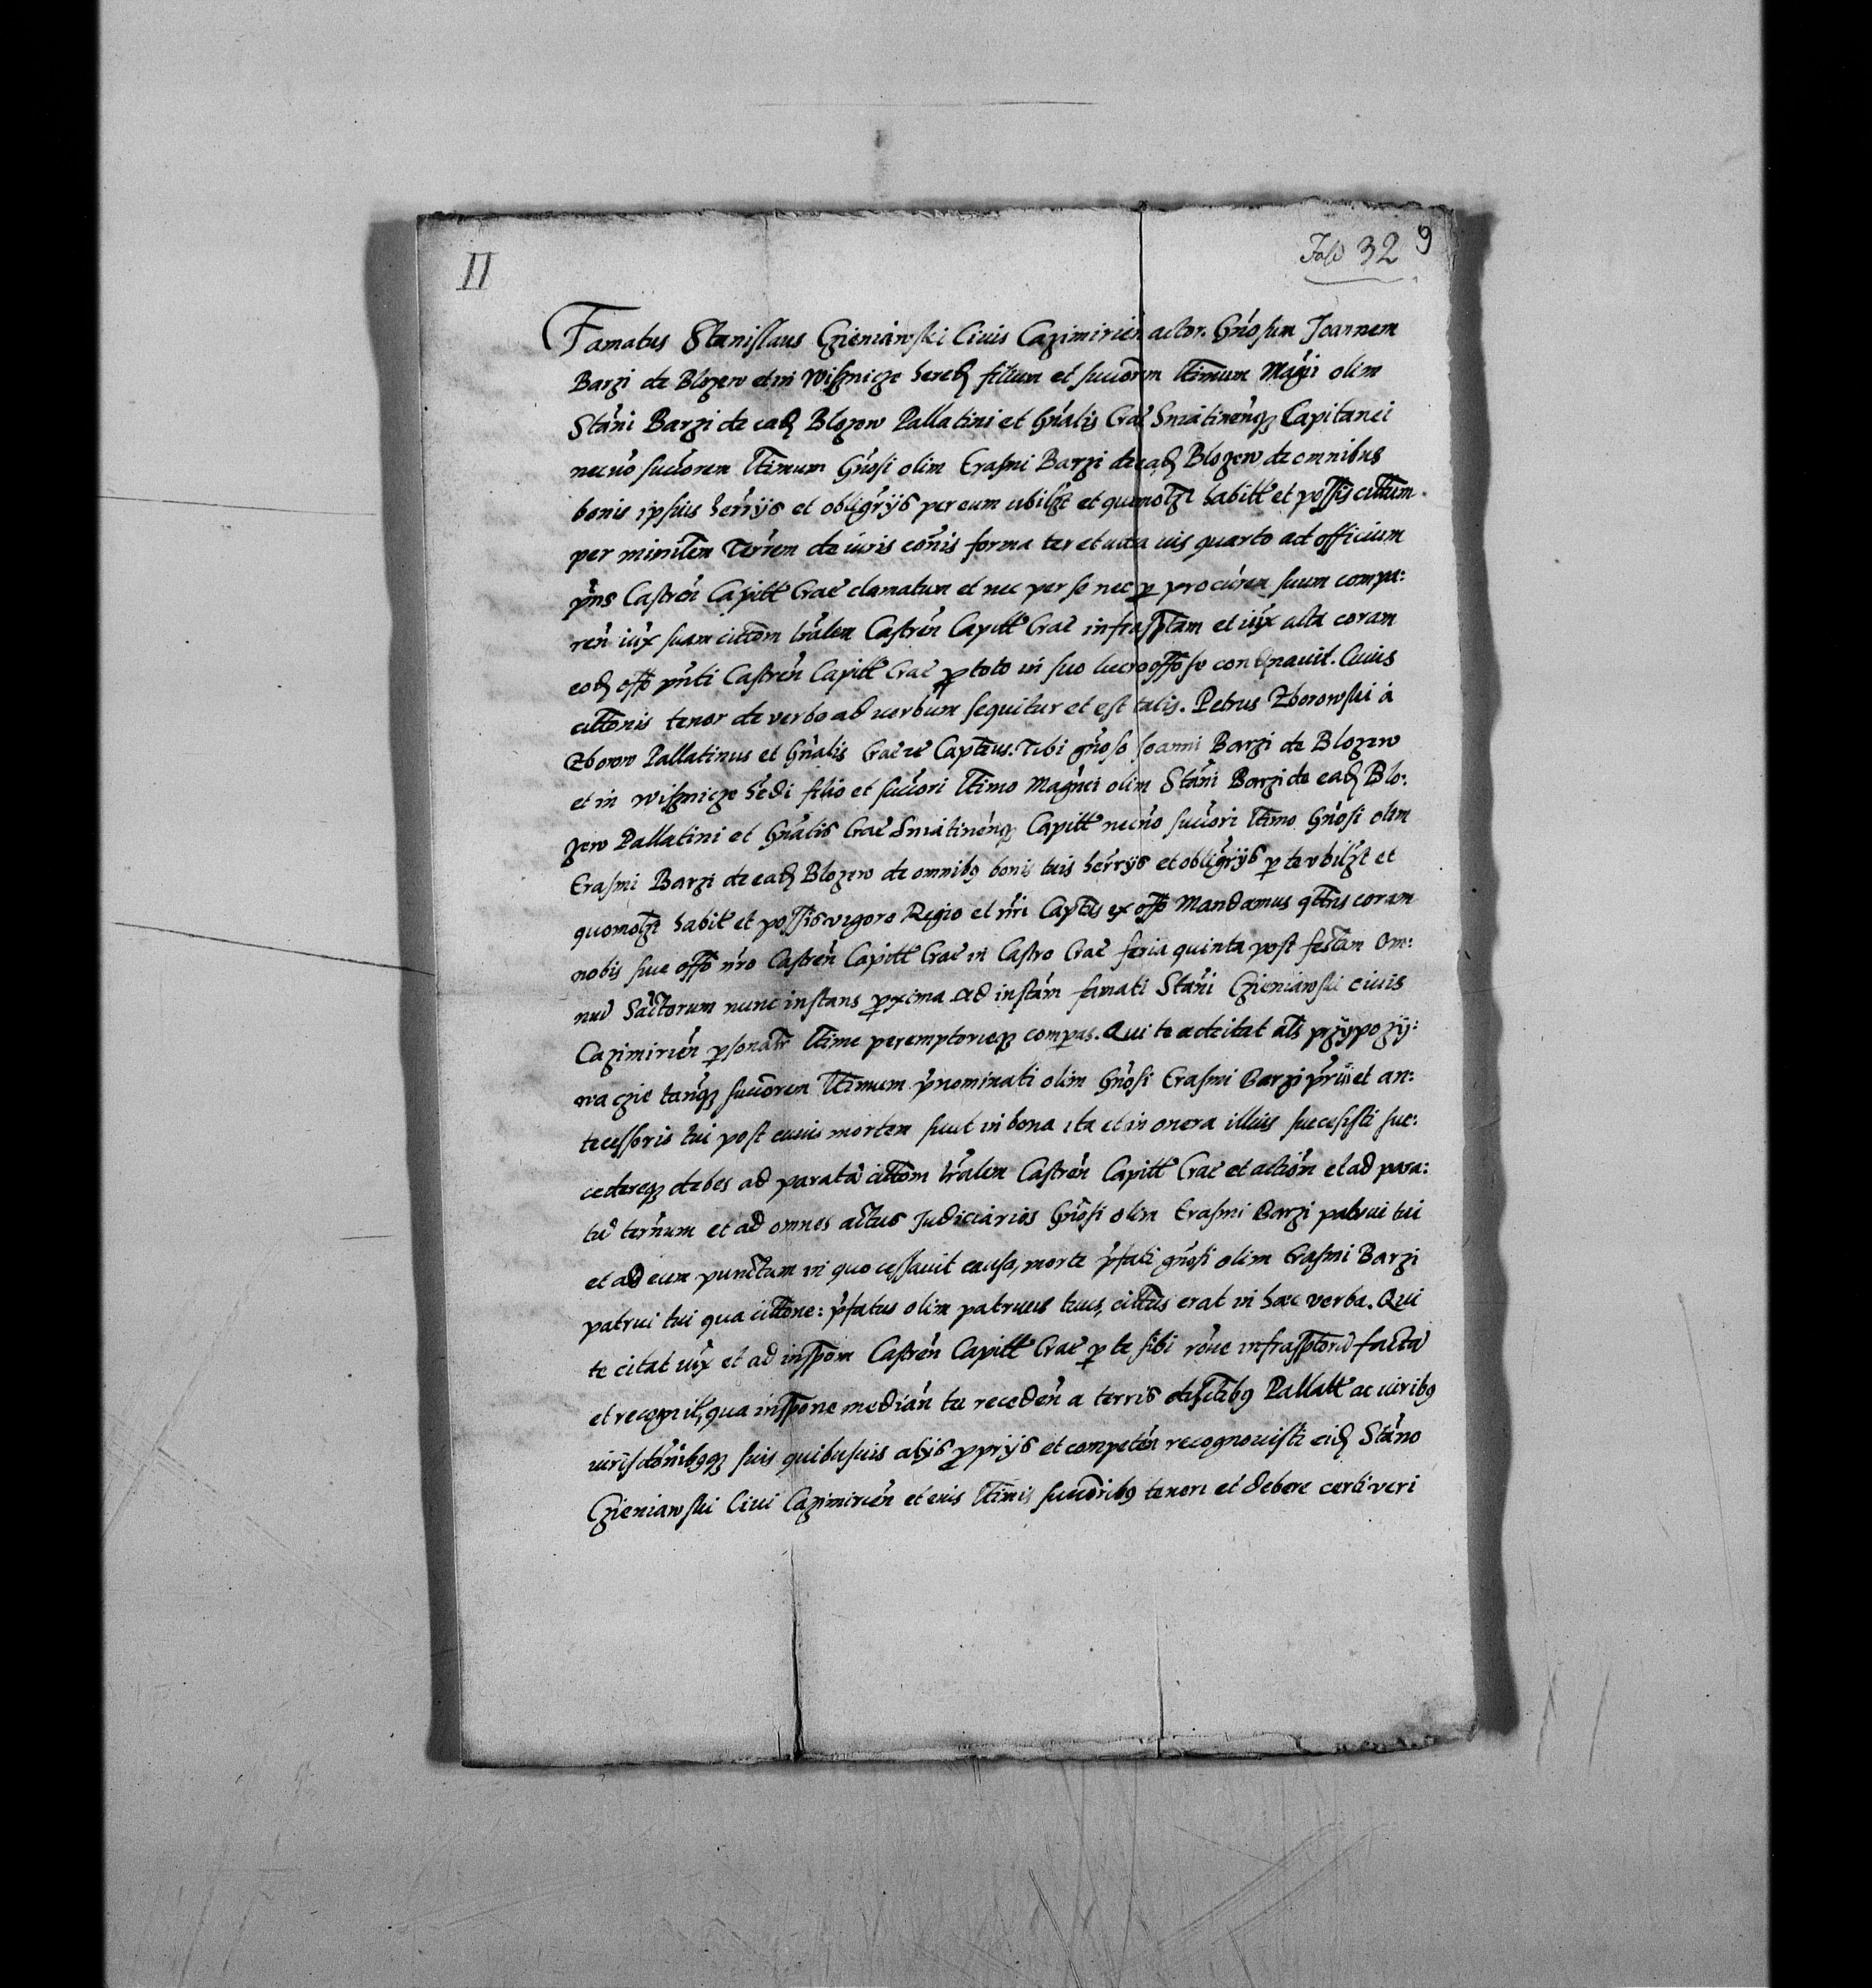 II
Fasc 32 9
Famatus Stanislaus Czieniawski Ciuis Cazimirień actor. Gnosum Joannem
Barzi de Blozew et in Wisznicze hered filium et succorem ltimum Magci olim
Stani Barzi de ead Blozew Pallatini et Gnalis Crac Sniatinenqz Capitanei
necno succorem ltimum Gnosi olim Erasmi Barzi de ead Blozew de omnibus
bonis ipsius herrijs et obligrijs per eum ubilzt et quomolzt habitt et possis cittum
per minilem Terrem de iuris cois forma ter et ultra uis quarto ad officium
pns Castren Capitt Crac clamatum et nec per se nec p procurem suum compa:
ren iux suam cittom lralem Castren Capitt Crac infrasptam et iux acta coram
eod offo pnti Castren Capitt Crac p toto in suo lucro offose condnauit. Cuius
cittonis tenor de verbo ad uerbum sequitur et est talis. Petrus Zborowski à
Zborow Pallatinus et Gnalis Crac Capteus. Tibi gnoso Joanni Barzi de Blozew
et in wisznicze hedi filio et succori ltimo Magnci olim Stani Barzi de ead Blo:
zew Pallatini et Gnalis Crac Sniatinenqz Capitt necno succori ltimo Gnosi olim
Erasmi Barzi de ead Blozew de omnibq bonis tuis herrijs et obligrijs p te vbilzt et
quomolzt habit et possis vigore Regio et nri Captus ex offo Mandamus qttus coram
nobis siue offo nro Castren Capitt Crac in Castro Crac feria quinta post festum Om:
niu Sactorum nunc instans pxima ad instam famati Stani Czieniawski ciuis
Cazimirien psonatr ltime peremptorieqz compas. Qui te adcitat als przypozÿ:
wa czie tanqz succorem ltimum pnominati olim Gnosi Erasmi Barzi prui et an:
tecessoris tui post cuius mortem sicut in bona ita et in onera illius successisti suc:
cedereqz debes ad parata cittom lralem Castren Capitt Crac et action et ad para:
tu ternum et ad omnes actus Judiciarios Gnosi olim Erasmi Barzi patrui tui
et ad eum punctum in quo cessauit causa, morte pfati gnosi olim Erasmi Barzi
patrui tui qua cittone: pfatus olim patruus tuus, cittus erat in hæc verba. Qui
te citat iux et ad inspom Castren Capitt Crac p te sibi rone infrasptoru facta
et recognit, qua inspone median tu receden a terris distctibq Pallatt ac iuribq
iurisdonibqqz suis quibusuis alijs pprijs et competen recognouisti eid Stano
Czieniawski Ciui Cazimirien et eius ltimis succoribq teneri et debere certi veri